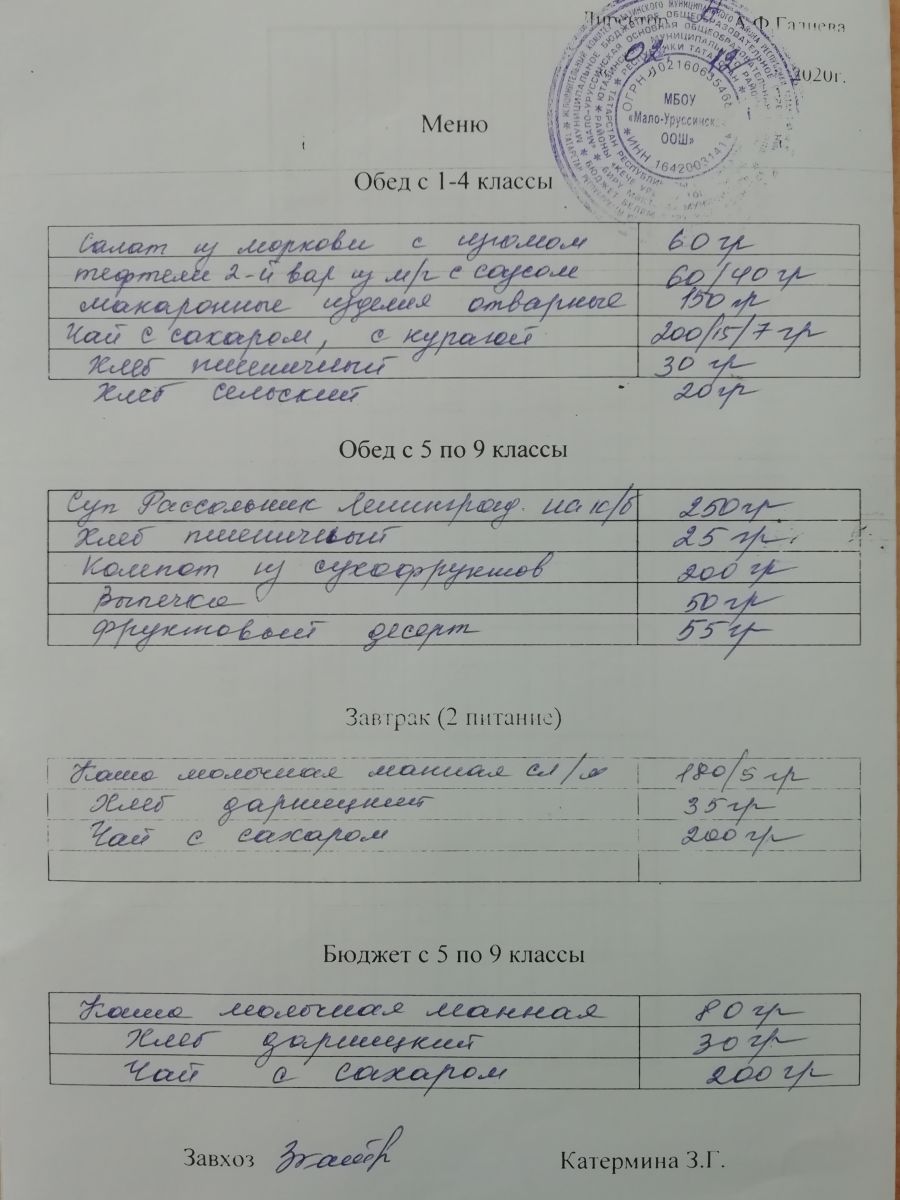 Директор А.Ф.Галиева
02 12 2020г.
МБОУ
«Мало-Уруссинская
ООШ»
Меню
Обед с 1-4 классы
Салат из моркови с изюмом 60 гр
тефтели 2-й вар из м/г с соусом 60/40 гр
макаронные изделия отварные 150 гр
Чай с сахаром, с курагой 200/15/7 гр
Хлеб пшеничный 30 гр
Хлеб сельский 20 гр
Обед с 5 по 9 классы
Суп Рассольник Ленинград. на к/б 250 гр
Хлеб пшеничный 25 гр.
Компот из сухофруктов 200 гр
Выпечка 50 гр
Фруктовый десерт 55 гр
Завтрак (2 питание)
Каша молочная манная сл/м 180/5 гр
Хлеб дарницкий 35 гр
Чай с сахаром 200 гр
Бюджет с 5 по 9 классы
Каша молочная манная 80 гр
Хлеб дарницкий 30 гр
Чай с сахаром 200 гр
Завхоз Катермина З.Г.